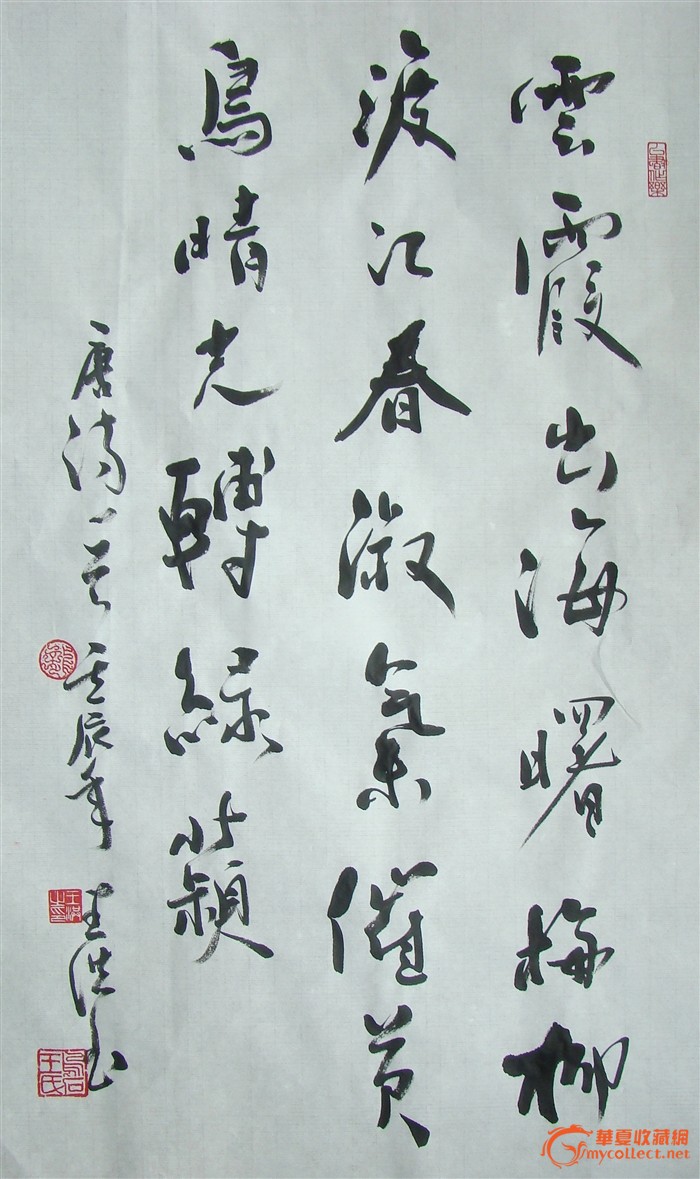 雲霞出海曙梅柳
渡江春淑氣催黃
鳥晴光轉綠蘋
唐诗一首 壬辰年 王洪
華夏收藏網
mycollect.net